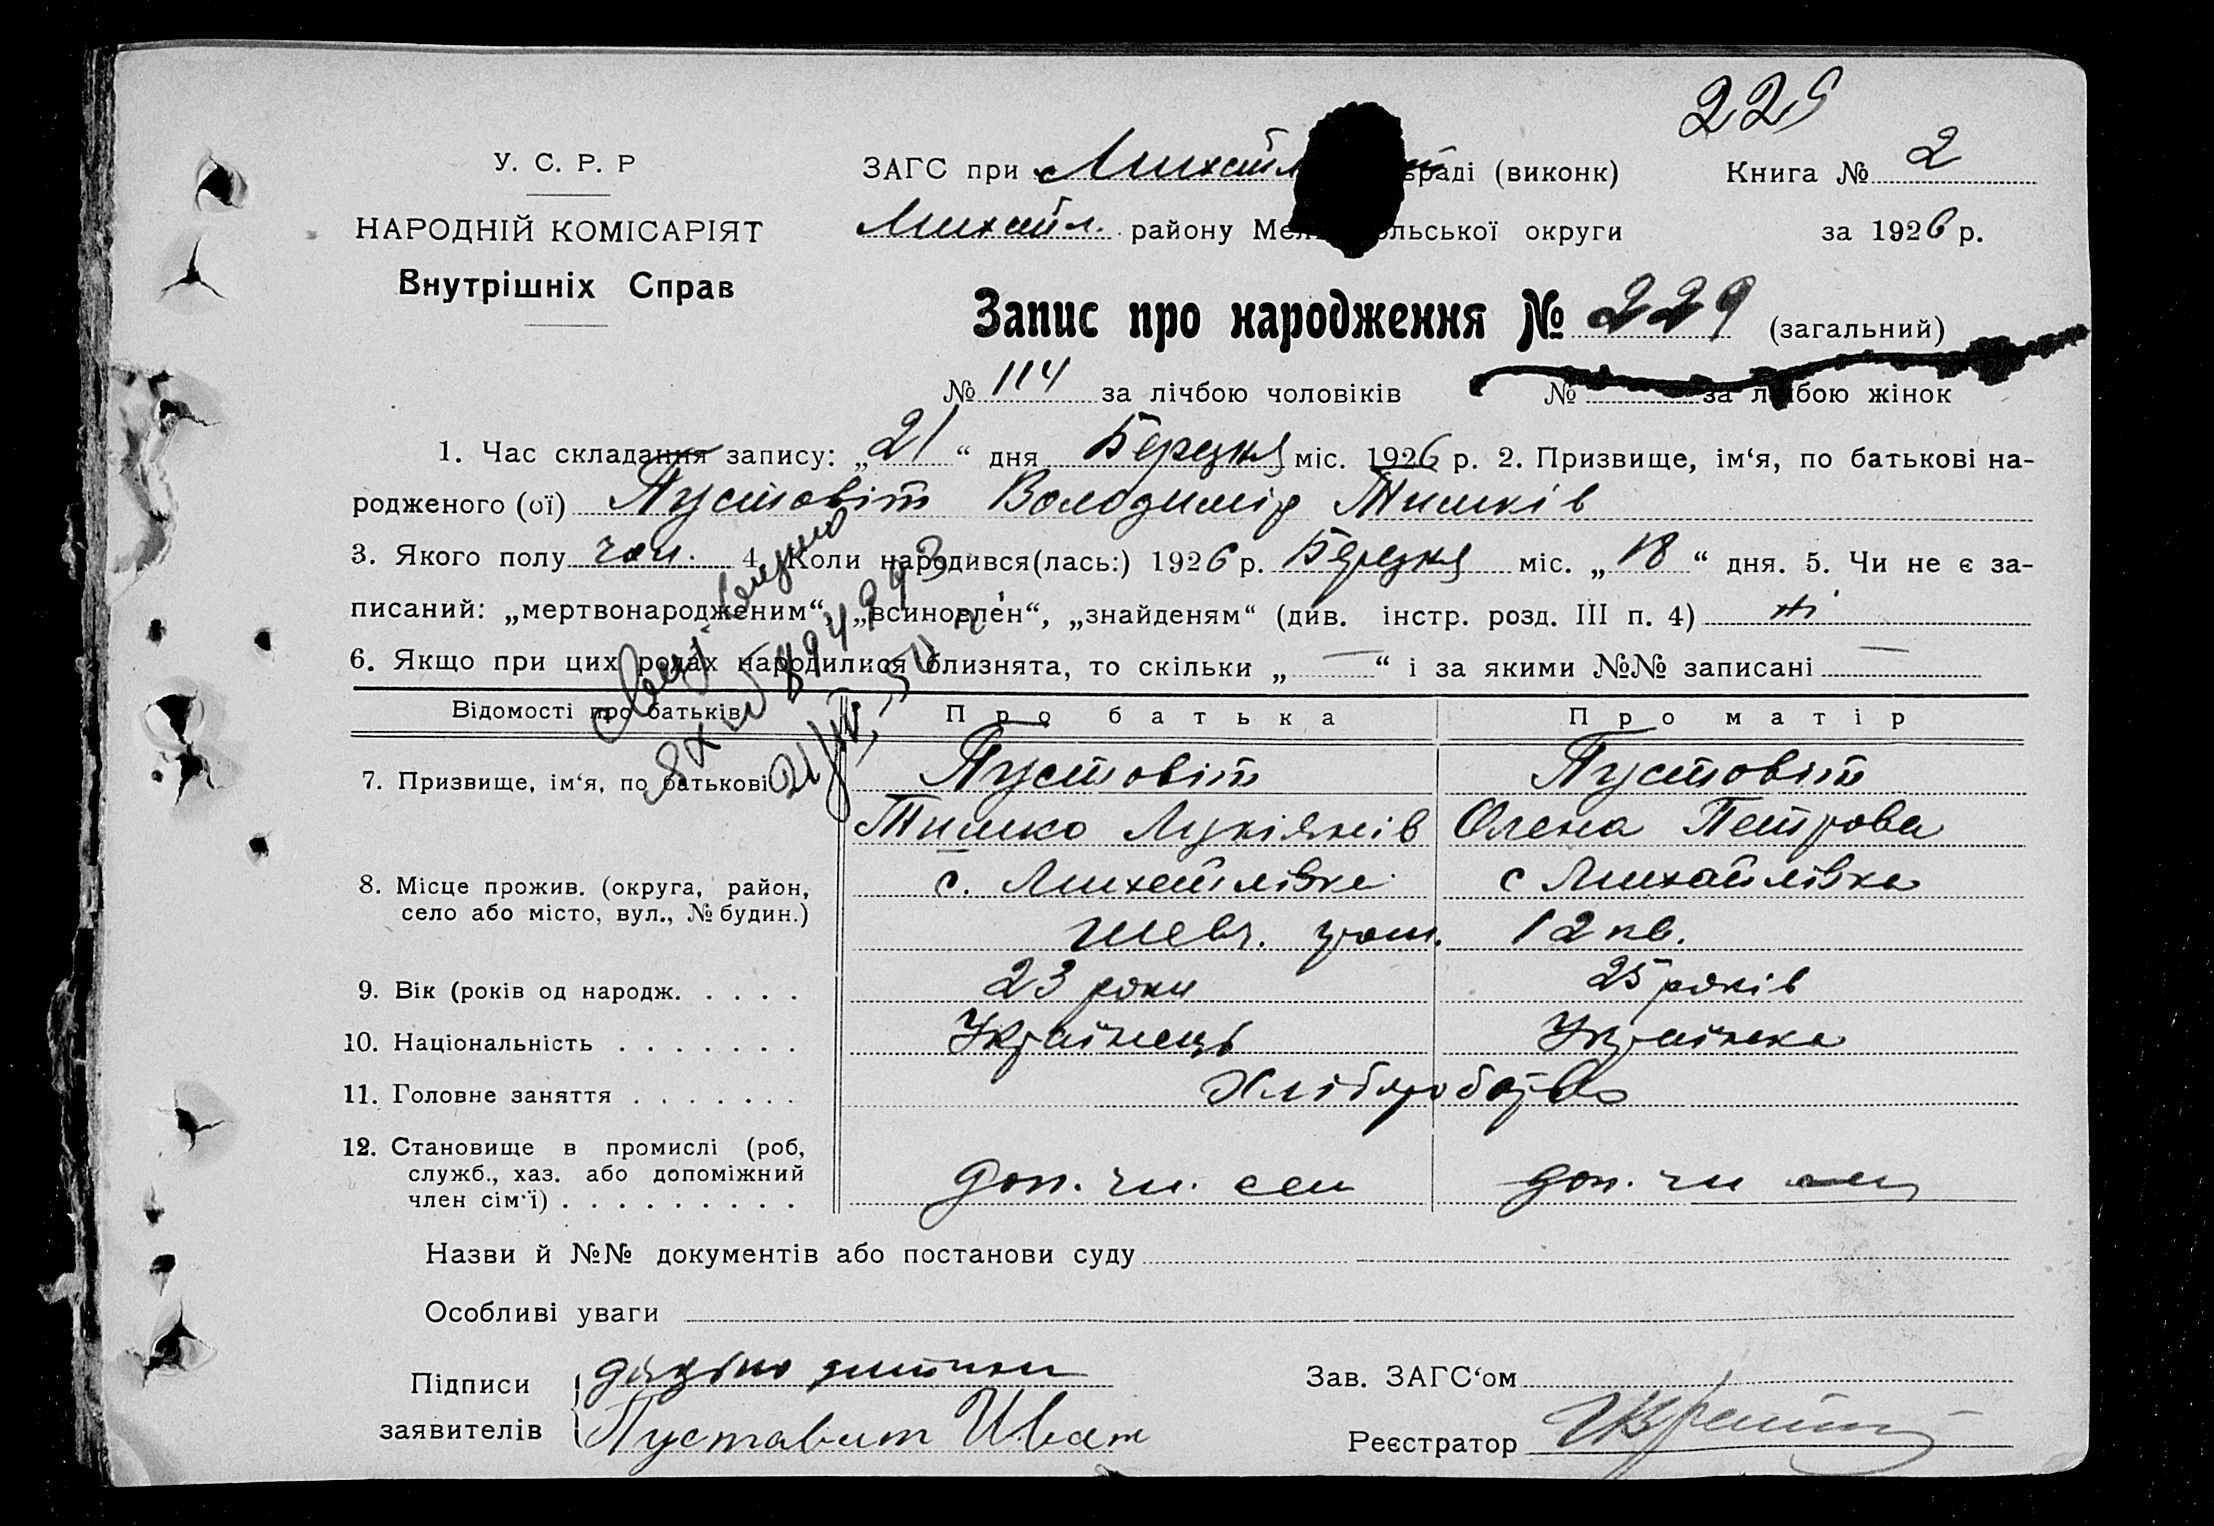 229
У. С. Р. Р
ЗАГС при Михайл раді (виконк) Книга № 2
НАРОДНІЙ КОМІСАРІЯТ
Михайл. району Мел ольської округи за 1926 р.
Внутрішніх Справ
Запис про народження № 229 (загальний)
№ 114 за лічбою чоловіків № за лічбою жінок
1. Час складання запису: „21“ дня Березня міс. 1926 р. 2. Призвище, ім‘я, по батькові на-
родженого (ої) Пустовіт Володимір Тимків
3. Якого полу чол. 4. Коли народився(лась:) 1926 р. Березня міс. „18“ дня. 5. Чи не є за-
писаний: „мертвонародженим“, „всиновлен“, „знайденям“ (див. інстр. розд. III п. 4) ні
6. Якщо при цих родах народилися близнята, то скільки „—“ і за якими №№ записані —
Відомості про батьків Про батька Про матір
7. Призвище, ім‘я, по батькові Пустовіт Пустовіт
Тимко Лукіянів Олена Петрова
8. Місце прожив. (округа, район, с. Михайлівка с Михайлівка
село або місто, вул., № будин.) Шевч. 12 кв.
9. Вік (років од народж. . . . . 23 роки 25 років
10. Національність . . . . . . . Українець Українка
11. Головне заняття . . . . . . . Хліборобство
12. Становище в промислі (роб,
служб., хаз. або допоміжний доп. чл. сем доп. чл сем
член сім‘ї) . . . . . . . . .
Назви й №№ документів або постанови суду
Особливі уваги
Підписи дядько дитини Зав. ЗАГС‘ом
заявителів Пуставит Иван Реєстратор